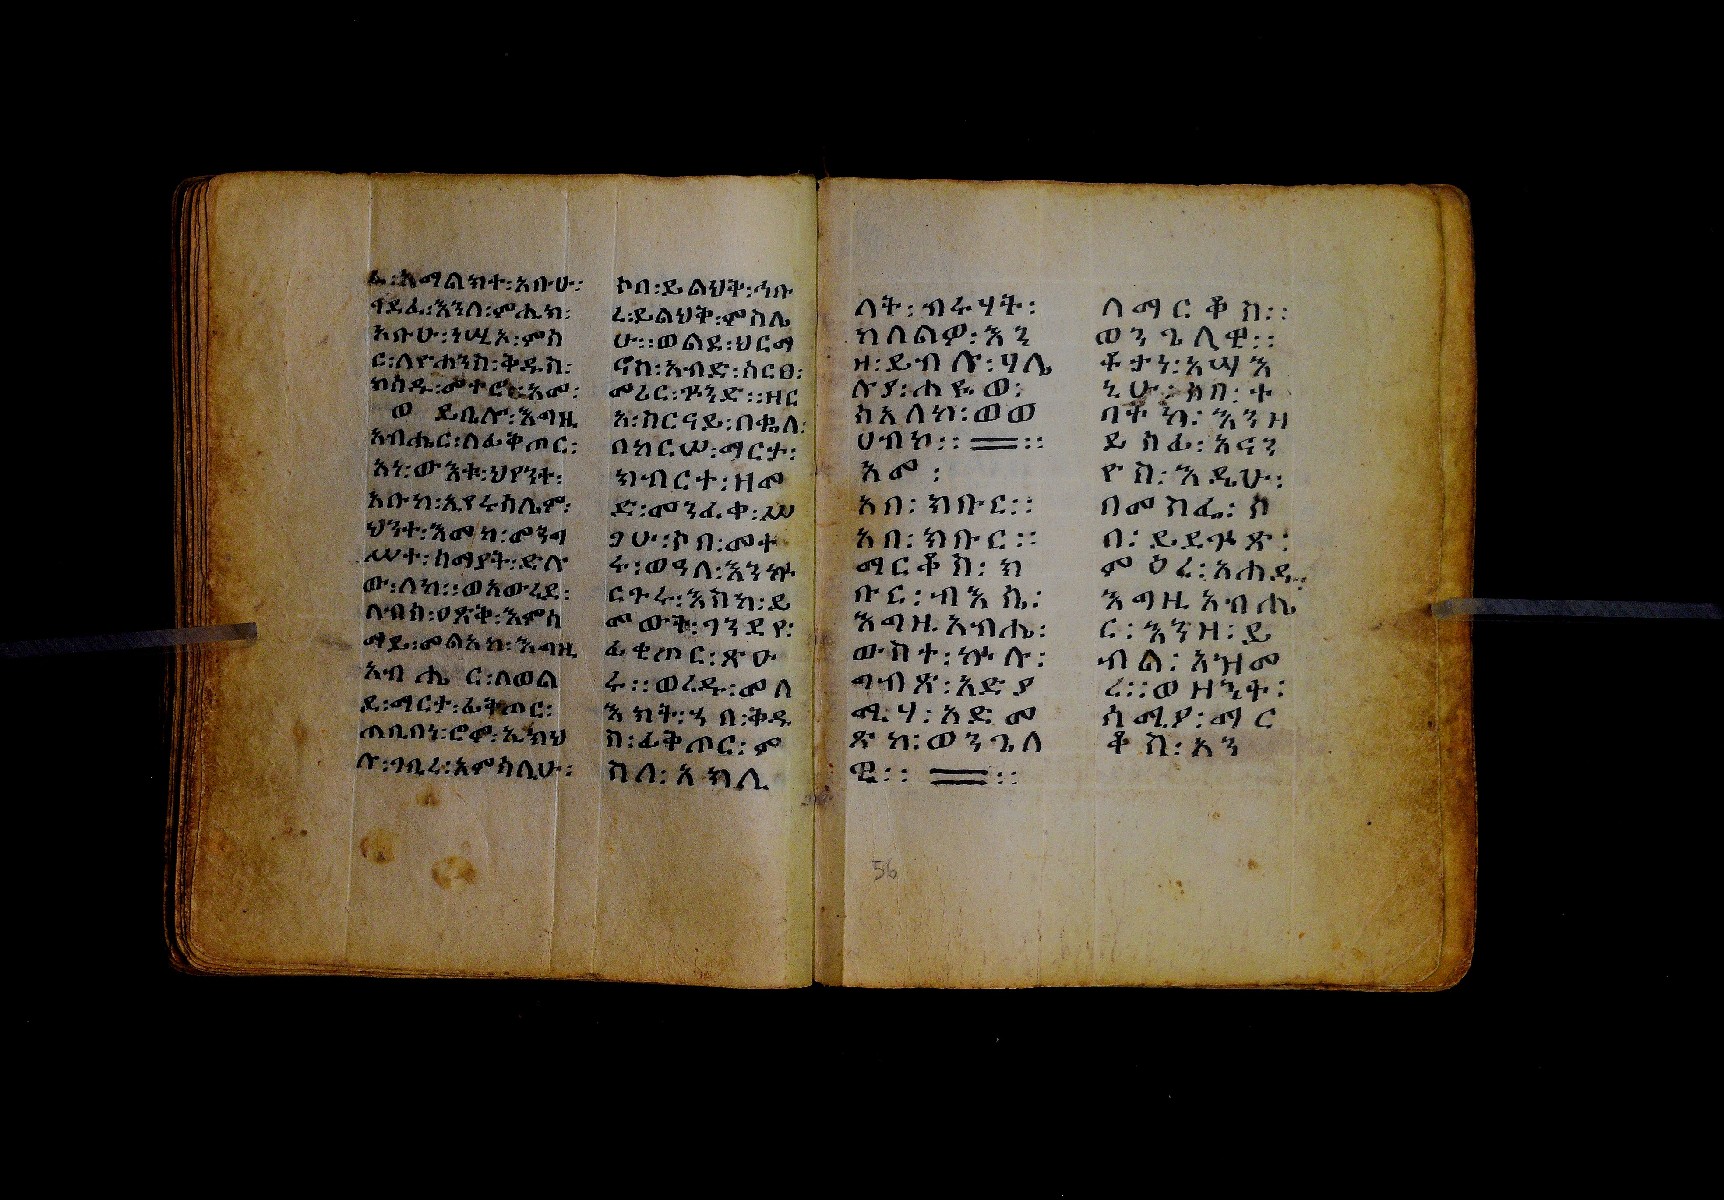 ፊ፡አማልክተ፡አቡሁ፡
ኀደፈ፡እንለ፡ምሒክ፡
እቡሁ፡ነሢኦ፡ምስ
ር፡ለዮሐንስ፡ቅዱስ፡
ክስዱ፡መተሮ፡አመ፡
ወ ይቤሎ፡እግዚ
አብሔር፡ለፊቅጦር፡
አነ፡ውእቱ፡ህየንተ፡
አቡከ፡ኢየሩሰሌም፡
ህንተ፡እመከ፡መንግ
ሥተ፡ሰማያት፡ድሉ
ው፡ለከ፡፡ወአውረደ፡
ለብሰ፡ዐጽቅ፡እምሰ
ማይ፡መልአከ፡እግዚ
አብ ሔ ር፡ለወል
ደ፡ማርታ፡ፊቅጦር፡
ጠቢበነ፡ሮምኢክህ
ሉ፡ገቢረ፡አምሳሊሁ፡
ኮበ፡ይልህቅ፡ኀቡ
ረ፡ይልህቅ፡ምስሌ
ሁ፡፡ወልደ፡ህርማ
ኖስ፡አብድ፡ሰርፀ፡
መሪር፡ጕንድ፡፡ዘር
አ፡ከርዳይ፡በቈለ፡
በከርሠ፡ማርታ፡
ክብርተ፡ዘመ
ድ፡መንፈቀ፡ሌ
ሩ፡ወዓለ፡እንኳ
ርጉሩ፡እስከ፡ይ
መውት፡ገንደየ፡
ፊቂጦር፡ጽዑ
ሩ፡፡ወረዱ፡መለ
እክት፡ኀበ፡ቅዱ
ስ፡ፊቅጦር፡ም
ስለ፡አክሊ
ለት፡ብሩሃት፡
ከለልዎ፡እን
ዘ፡ይብሉ፡ሃሌ
ሉያ፡ሐይወ፡
ከአለከ፡ወወ
ሀብከ፡፡ ፡፡
እመ፡
አበ፡ክቡር፡፡
አበ፡ክቡር፡፡
ማርቆስ፡ክ
ቡር፡ብእሲ፡
እግዚአብሔ፡
ውስተ፡ኵሉ፡
ግብጽ፡አድያ
ሚሃ፡አድመ
ጽከ፡ወንጌለ
ዊ፡፡ ፡፡
ለማርቆስ፡፡
ወንጌላዊ፡፡
ቶታነ፡አሣእ
ኒሁ፡ሰበ፡ተ
በትከ፡እንዘ
ይሰፊ፡አናን
ዮስ፡እዲሁ፡
በመስፌ፡ሶ
በ፡ይደጕጽ፡
ምዕረ፡አሐዱ፡
እግዚአብሔ
ር፡እንዘ፡ይ
ብል፡አዝመ
ረ፡፡ወዘንተ፡
ሰሚያ፡ማር
ቆስ፡አን
56